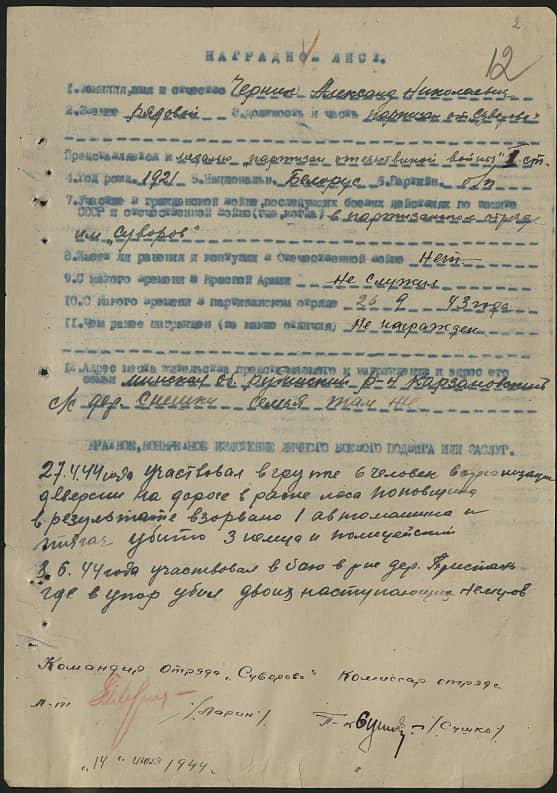 2
12
НАГРАДНОЙ ЛИСТ.
1. Фамилия, имя и отчество Черник Александ Николаевич
2. Звание рядовой 3. Должность и часть партизан о-д "Суворова"
Представляется к медалью партизан отечественной войны "II ст.
4. Год рожд. 1921 5. Национальн. Белорус 6. Партийн. б/п
7. Участие в гражданской войне, последующих боевых действиях по защите
СССР и отечественной войне (где, когда) в партизанском отряде
им. "Суворов"
8. Имеет ли ранения и контузии в Отечественной войне Нет
9. С какого времени в Красной Армии Не служил
10. С какого времени в партизанском отряде 26 9 43 года
11. Чем ранее награжден (за какие отличия) Не награжден
12. Адрес места жительства представляемого к награждению и адрес его
семьи Минская об. р-н
с/с дер. Снешки семья там же
КРАТКОЕ, КОНКРЕТНОЕ ИЗЛОЖЕНИЕ ЛИЧНОГО БОЕВОГО ПОДВИГА ИЛИ ЗАСЛУГ.
27.4.44 года участвовал в групе 6 человек в организации
диверсии на дороге в раене леса
в результате взорвано 1 автомашина и
тягач убито 3 немца и полицейский
3.6.44 года участвовал в бою в р-не дер. Пристань
где в упор убил двоих наступающих немцов
Командир отряда "Суворова" Комиссар отряда
л-т /Ларин/ /Сушко/
"14" июля 1944 г.